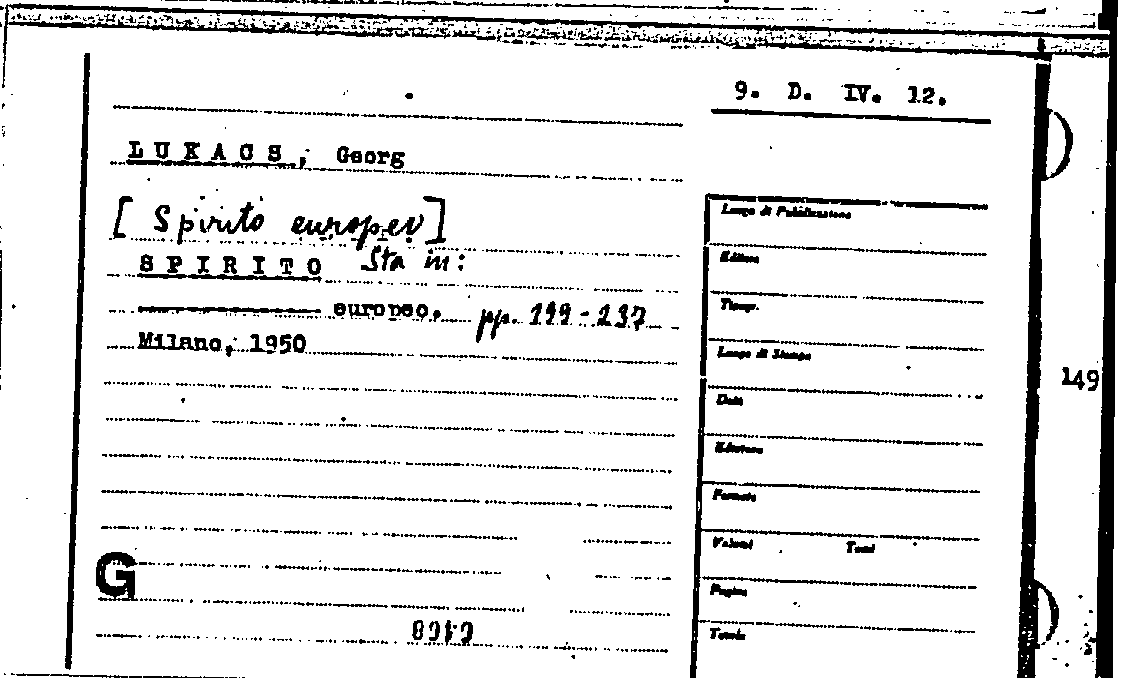 9. D. IV. 12.
LUKACS, Georg
[Spirito europeo]
SPIRITO Sta in:
europeo. pp. 199-237
Milano, 1950
Luogo di Pubblicazione
Editore
Tipogr.
Luogo di Stampa
Data
Edizione
Formato
Volumi Tomi
Pagine
Tavole
149
G